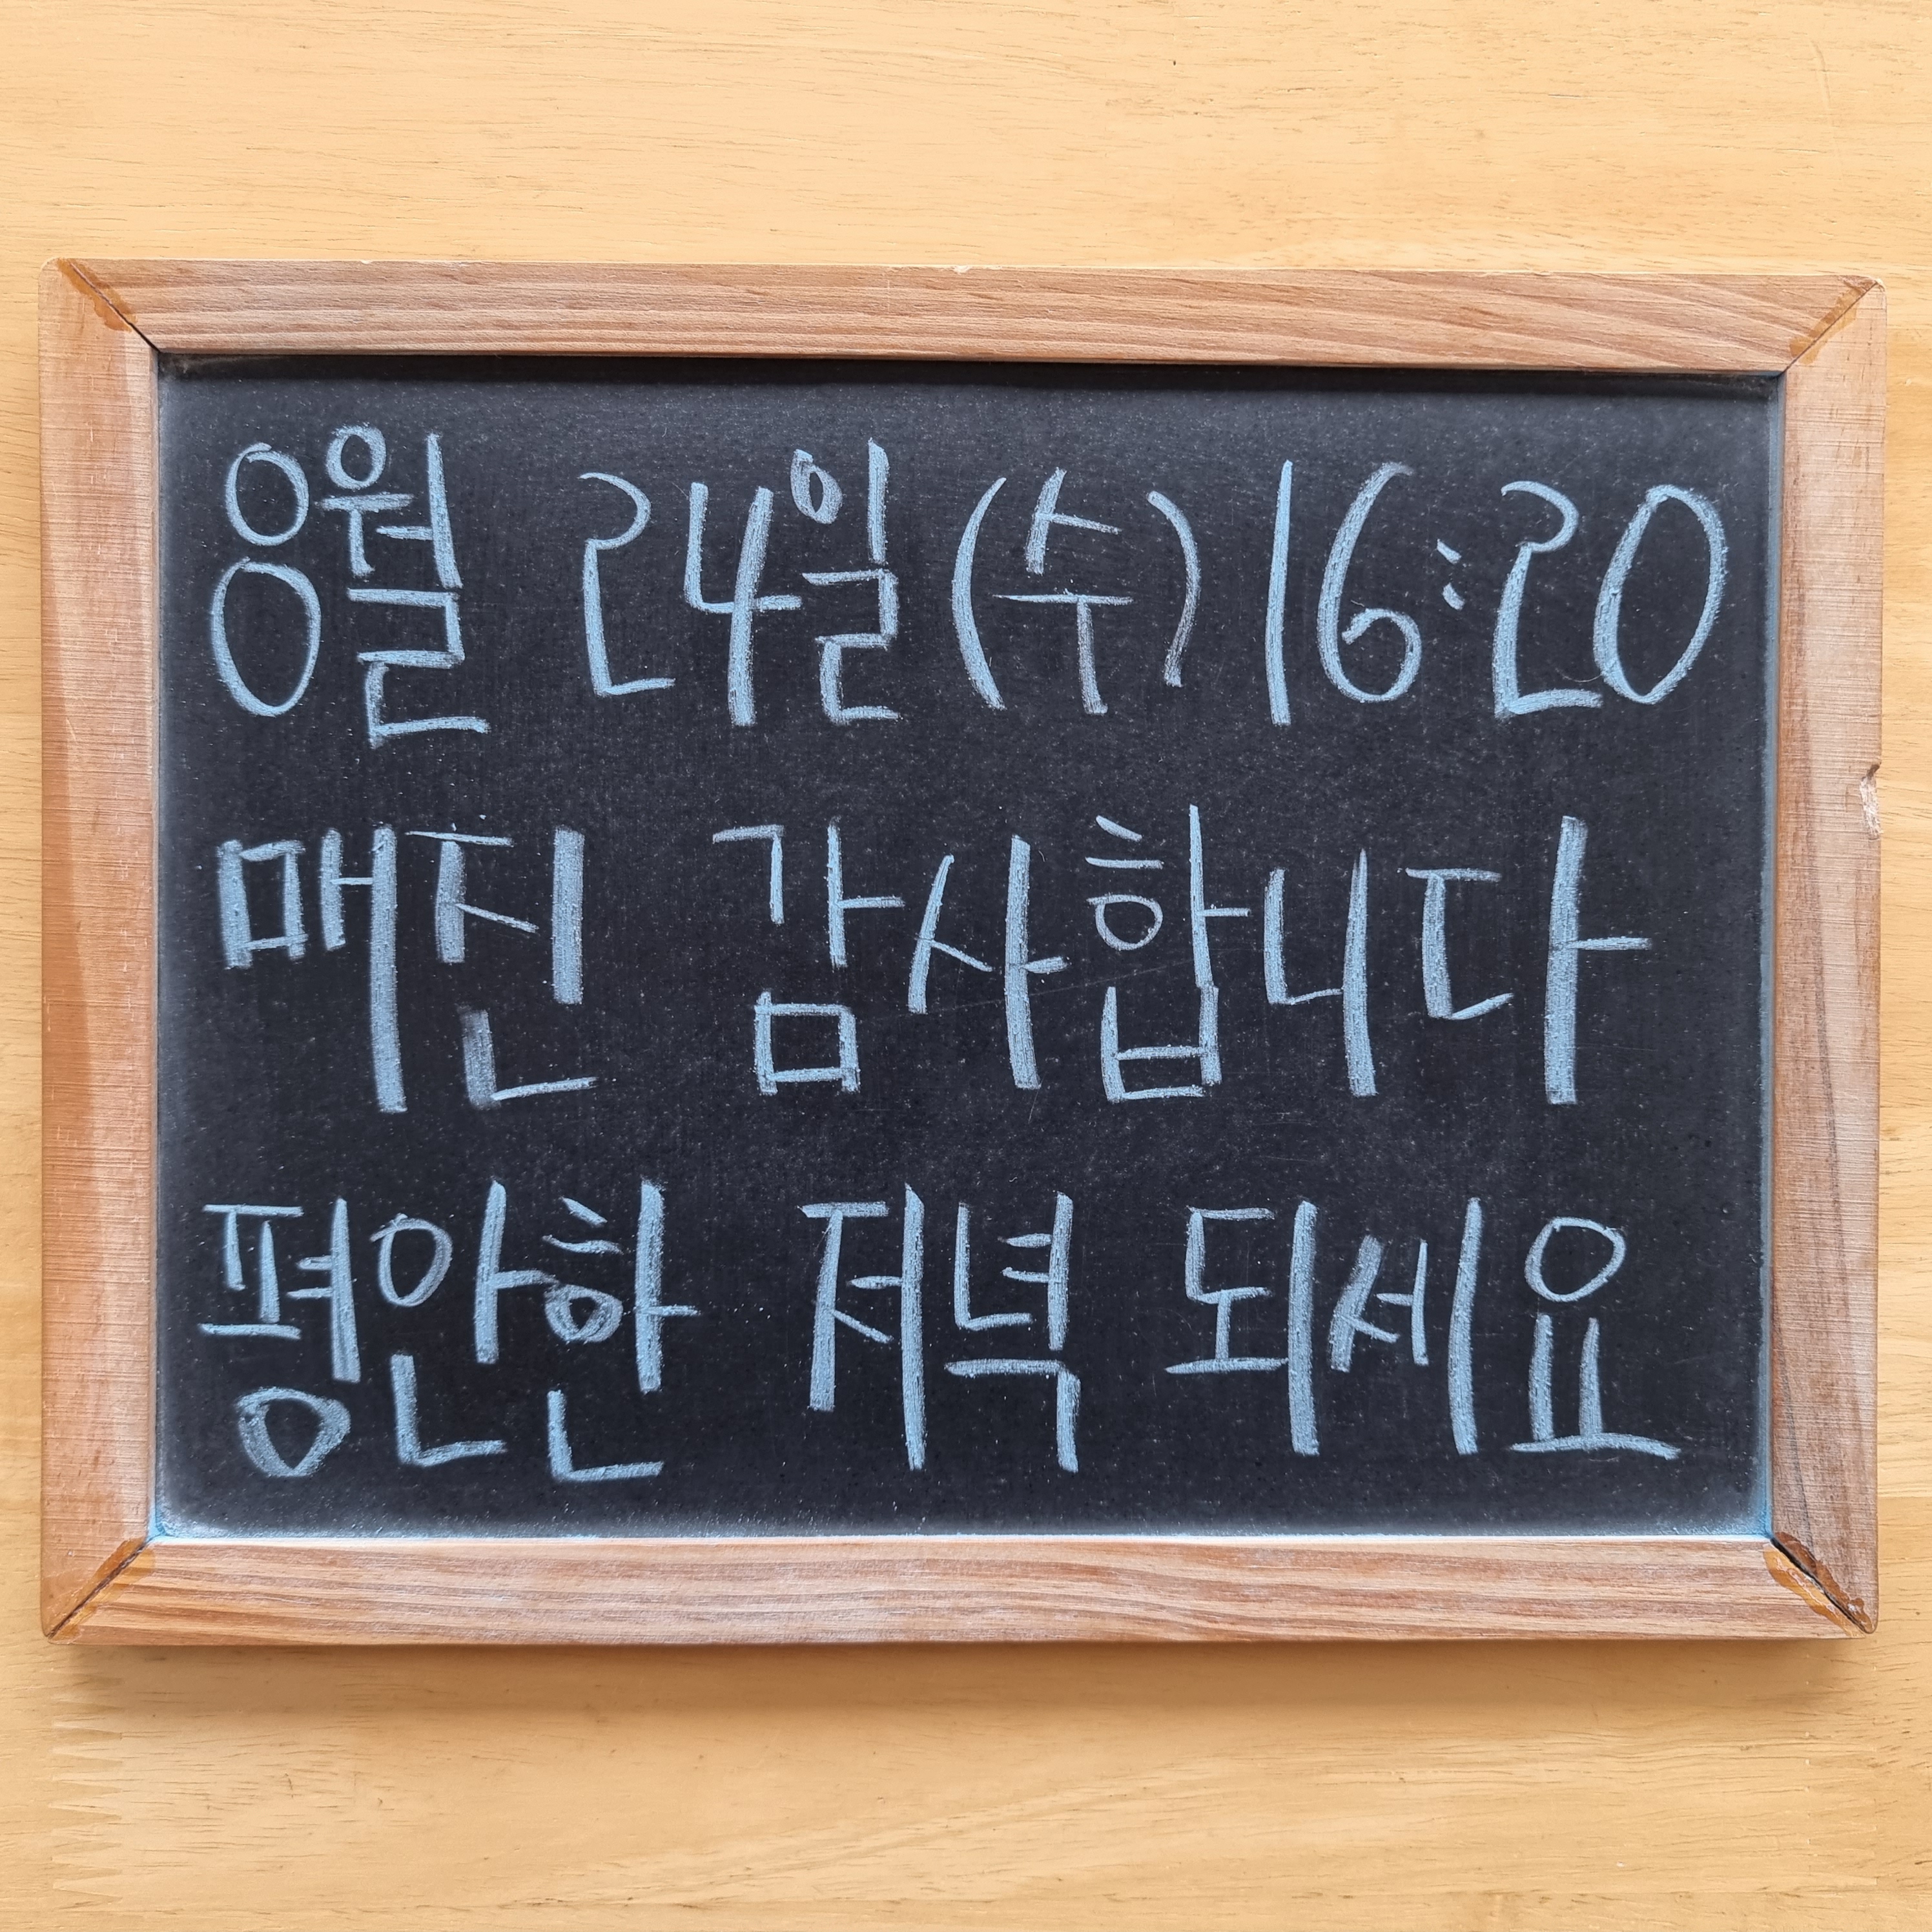 8월 24일(수) 16:20
매진 감사합니다
평안한 저녁 되세요